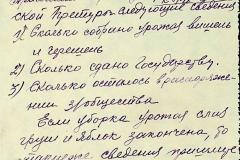 ской Претуры следующие сведения
1) Сколько собрано урожая вишень
и черешень
2) Сколько сдано Государству.
3) Сколько осталось в распоряже-
нии з/общества
Если уборка урожая слив
груш и яблок закончена, то
также сведения